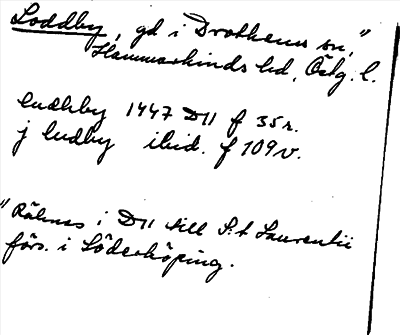 Loddby, gd i Drothems sn,"
Hammarkinds hd, Östg. l.
ludhby 1447 D11 f 35r.
j ludby ibid. f 109v.
"Räknas i D11 till S:t Laurentii
förs. i Söderköping.